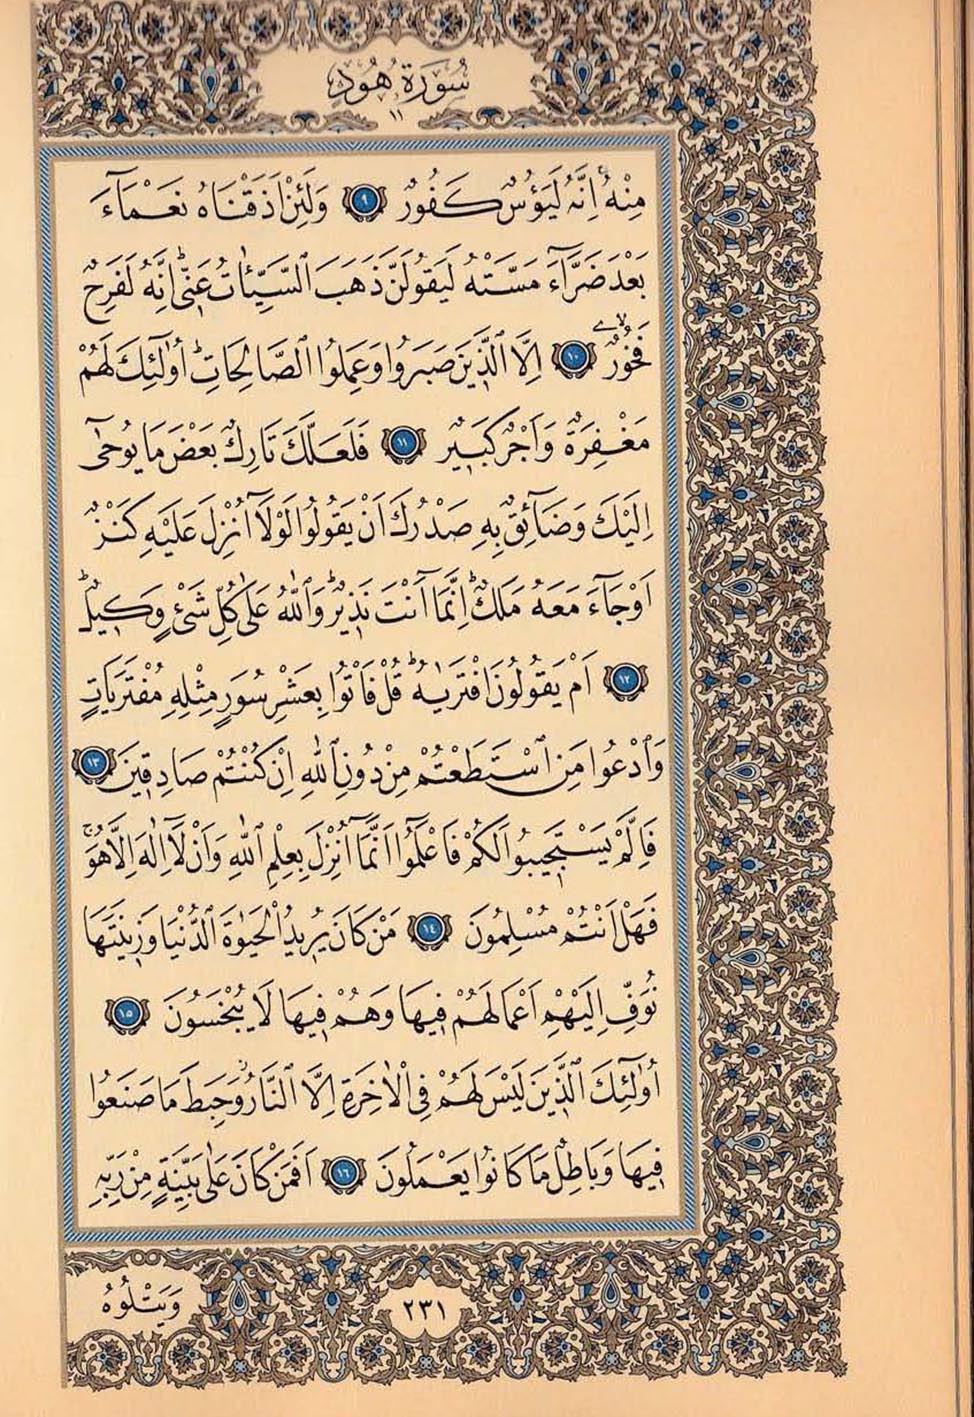 سُورَةُ هُودٍ
١١
مِنْهُۚ اِنَّهُ لَيَؤُسٌ كَفُورٌ ٩ وَلَئِنْ اَذَقْنَاهُ نَعْمَٓاءَ
بَعْدَ ضَرَّٓاءَ مَسَّتْهُ لَيَقُولَنَّ ذَهَبَ السَّيِّـَٔاتُ عَنّ۪يۜ اِنَّهُ لَفَرِحٌ
فَخُورٌۙ ١٠ اِلَّا الَّذ۪ينَ صَبَرُوا وَعَمِلُوا الصَّالِحَاتِۜ اُو۬لٰٓئِكَ لَهُمْ
مَغْفِرَةٌ وَاَجْرٌ كَب۪يرٌ ١١ فَلَعَلَّكَ تَارِكٌ بَعْضَ مَا يُوحٰٓى
اِلَيْكَ وَضَٓائِقٌ بِه۪ صَدْرُكَ اَنْ يَقُولُوا لَوْلَٓا اُنْزِلَ عَلَيْهِ كَنْزٌ
اَوْ جَٓاءَ مَعَهُ مَلَكٌۜ اِنَّمَٓا اَنْتَ نَذ۪يرٌۜ وَاللّٰهُ عَلٰى كُلِّ شَيْءٍ وَك۪يلٌۜ
١٢ اَمْ يَقُولُونَ افْتَرٰيهُۜ قُلْ فَأْتُوا بِعَشْرِ سُوَرٍ مِثْلِه۪ مُفْتَرَيَاتٍ
وَادْعُوا مَنِ اسْتَطَعْتُمْ مِنْ دُونِ اللّٰهِ اِنْ كُنْتُمْ صَادِق۪ينَ ١٣
فَاِلَّمْ يَسْتَج۪يبُوا لَكُمْ فَاعْلَمُٓوا اَنَّمَٓا اُنْزِلَ بِعِلْمِ اللّٰهِ وَاَنْ لَٓا اِلٰهَ اِلَّا هُوَۚ
فَهَلْ اَنْتُمْ مُسْلِمُونَ ١٤ مَنْ كَانَ يُر۪يدُ الْحَيٰوةَ الدُّنْيَا وَز۪ينَتَهَا
نُوَفِّ اِلَيْهِمْ اَعْمَالَهُمْ ف۪يهَا وَهُمْ ف۪يهَا لَا يُبْخَسُونَ ١٥
اُو۬لٰٓئِكَ الَّذ۪ينَ لَيْسَ لَهُمْ فِي الْاٰخِرَةِ اِلَّا النَّارُۘ وَحَبِطَ مَا صَنَعُوا
ف۪يهَا وَبَاطِلٌ مَا كَانُوا يَعْمَلُونَ ١٦ اَفَمَنْ كَانَ عَلٰى بَيِّنَةٍ مِنْ رَبِّه۪
٢٣١
وَيَتْلُوهُ